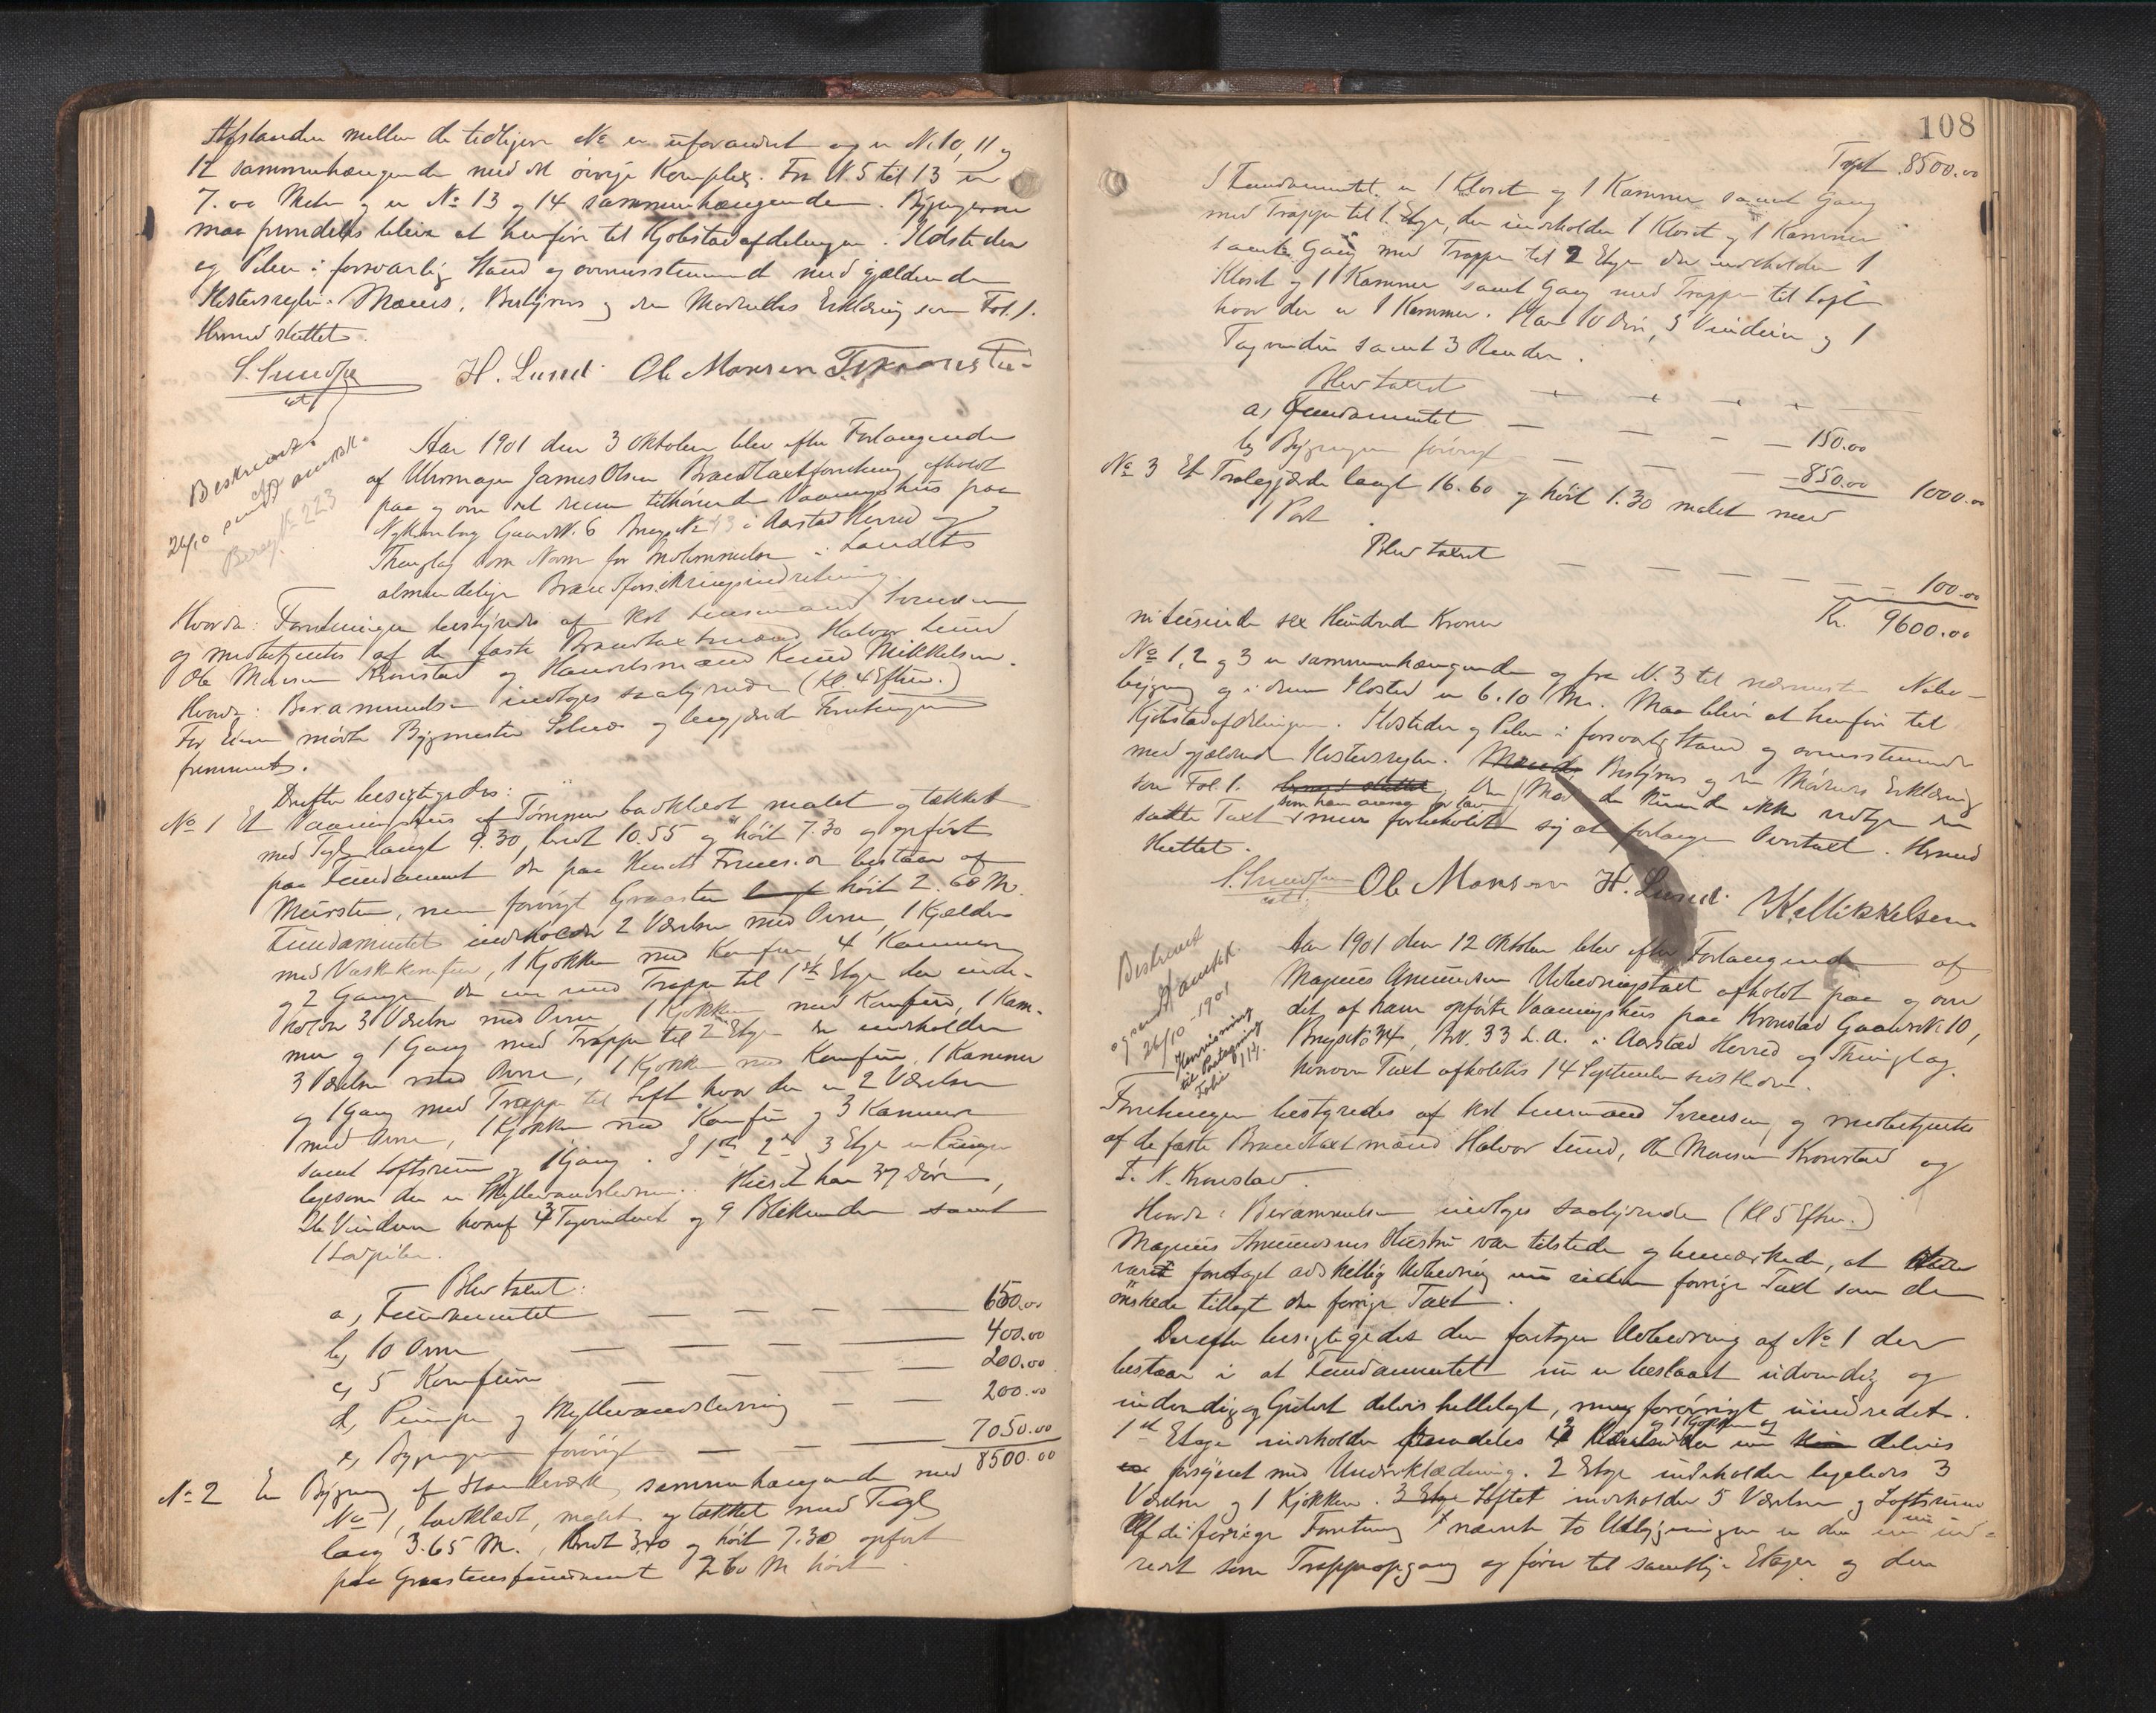 Afstanden mellem de tidligere No er uforandret og er N. 10, 11 og
12 sammenhængende med det øvrige Kompleks. Fra N. 5 til 13 er
7.00 Meter og er No 13 og 14 sammenhængende. Bygningerne
maa fremdeles blive at henføre til Kjøbstadafdelingen. Ildsteder
og Piber i forsvarlig Stand og overensstemmende med gjældende
Ildstedsregler. Mænds, Bestyrers og den Mødendes Erklæring som Fol. 1.
Hermed sluttet.
H. Lund Ole Monsen
Beskrevet
26/10
Bereg. No 223
Aar 1901 den 3 Oktober blev efter Forlangende
af Uhrmager James Olsen Brandtaxtforretning afholdt
paa og over det ham tilhørende Vaaningshus paa
Gaards N. 6 Brugs No i Aarstad Herred og
Thinglag som Norm for Indlemmelse i Landets
almindelige Brandforsikringsindretning
Hvorda: Forretningen bestyredes af kst Lensmand
og medbetjentes af de faste Brandtaxtmænd Halvor Lund
Ole Monsen Kronstad og Handelsmand Knud Mikkelsen.
Hvorda: Berammelse indtoges saalydende (Kl 4 Efterm.)
For mødte Bygmester og begjærede Forretningen
fremmet.
Derefter besigtigedes:
No 1 Et Vaaningshus af Tømmer bordklædt malet og tækket
med Tagl, langt 9.30, bredt 10.55 og høit 7.30 og opført
paa Fundament der paa Husets Frontside bestaar af
Mursten, men forøvrigt Graasten høit 2.60 M.
Fundamentet indeholder 2 Værelser med Ovne, 1 Kjælder
med Vaskekomfur, 1 Kjøkken med Komfur, 4 Kammer
og 2 Gange der er med Trappe til 1ste Etage der inde-
holder 3 Værelser med Ovne 1 Kjøkken med Komfur, 1 Kam-
mer og 1 Gang med Trappe til 2den Etage der indeholder
3 Værelser med Ovne, 1 Kjøkken med Komfur, 1 Kammer
og 1 Gang med Trappe til Loft hvor der er 2 Værelser
med Ovne, 1 Kjøkken med Komfur og 3 Kammer
samt Loftsrum og 1 Gang. I 1ste 2den 3 Etage er Pumper
ligesom der er Skyllevandsledning. Huset har 37 Døre,
Vinduer hvoraf Tagvinduer og 9 Blikrender samt
1 Lodpibe.
Blev taxert:
a, Fundamentet 650.00
b, 10 Ovne 400.00
c, 5 Komfurer 200.00
d, Pumper og Skyllevandsledning 200.00
e, Bygningen forøvrigt 7050.00
8500.00
No 2 En Bygning af Standværk, sammenhængende med
No 1, bordklædt, malet og tækket med Tagl
lang 3.65 M., bredt og høit 7.30 opført
paa Graastensfundament 2.60 M høit
108
Taxt 8500.00
I Fundamentet er 1 Kloset og 1 Kammer samt Gang
med Trappe til 1. Etage, der indeholder 1 Kloset og 1 Kammer
samt Gang med Trappe til 2 Etage der indeholder 1
Kloset og 1 Kammer samt Gang med Trappe til Loft
hvor der er 1 Kammer. Har 10 Døre, 3 Vinduer og 1
Tagvindue samt 3 Render.
Blev taxert
a, Fundamentet 150.00
b, Bygningen forøvrigt 850.00 1000.00
No 3 Et Tralegjærde langt 16.60 og høit 1.30 malet med
1 Port.
Blev taxert 100.00
Kr. 9600.00
nitusinde sex Hundrede Kroner
No 1, 2 og 3 er sammenhængende og fra N. 3 til nærmeste Nabo-
bygning og i dens Ildsted er 6.10 M. Maa blive at henføre til
Kjøbstadafdelingen. Ildsteder og Piber i forsvarlig Stand og overensstemmende
med gjældende Ildstedsregler. Mænds Bestyrers og den Mødendes Erklæring
som Fol 1. hermed sluttet, der kunde ikke vedtage den
satte Taxt som han for lav men forbeholdt sig at forlange Overtaxt. Hermed
sluttet.
Ole Monsen H. Lund K. Mikkelsen
Beskrevet
og sendt
26/10 - 1901
Henvisning
til Protegning
Folie 114.
Aar 1901 den 12 Oktober blev efter Forlangende af
Magnus Amundsen Udbedringstaxt afholdt paa og over
det af ham opførte Vaaningshus paa Kronstad Gaards N. 10,
Brugs No 34, Br. 33 L. A. i Aarstad Herred og Thinglag.
hvorover Taxt afholdtes 14 September sidstleden.
Forretningen bestyredes af kst Lensmand Svendsen, og medbetjentes
af de faste Brandtaxtmænd Halvor Lund, Ole Monsen Kronstad og
T. N. Kronstad.
Hvorda: Berammelsen indtoges saalydende (Kl 5 Efterm.)
Magnus Amundsens Hustru var tilstede og bemærkede, at der
var foretaget adskellig Udbedring siden forrige Taxt som de
ønskede tillagt den forrige Taxt.
Derefter besigtigedes den foretagne Udbedring af No 1 der
bestaar i at Fundamentet nu er beslaaet udvendig og
indvendig og Gulvet delvis hellelagt, men forøvrigt uindredet.
1ste Etage indeholder fremdeles Værelser og 1 Kjøkken og der er nu delvis
forsynet med Underklædning. 2 Etage indeholder ligeledes 3
Værelser og 1 Kjøkken. 3 Etage Loftet indeholder 5 Værelser og Loftsrum
Af de i forrige Forretning nævnte to Udbygninger er den ene nu ind-
redet som Trappeopgang og fører til samtlige Etager og den